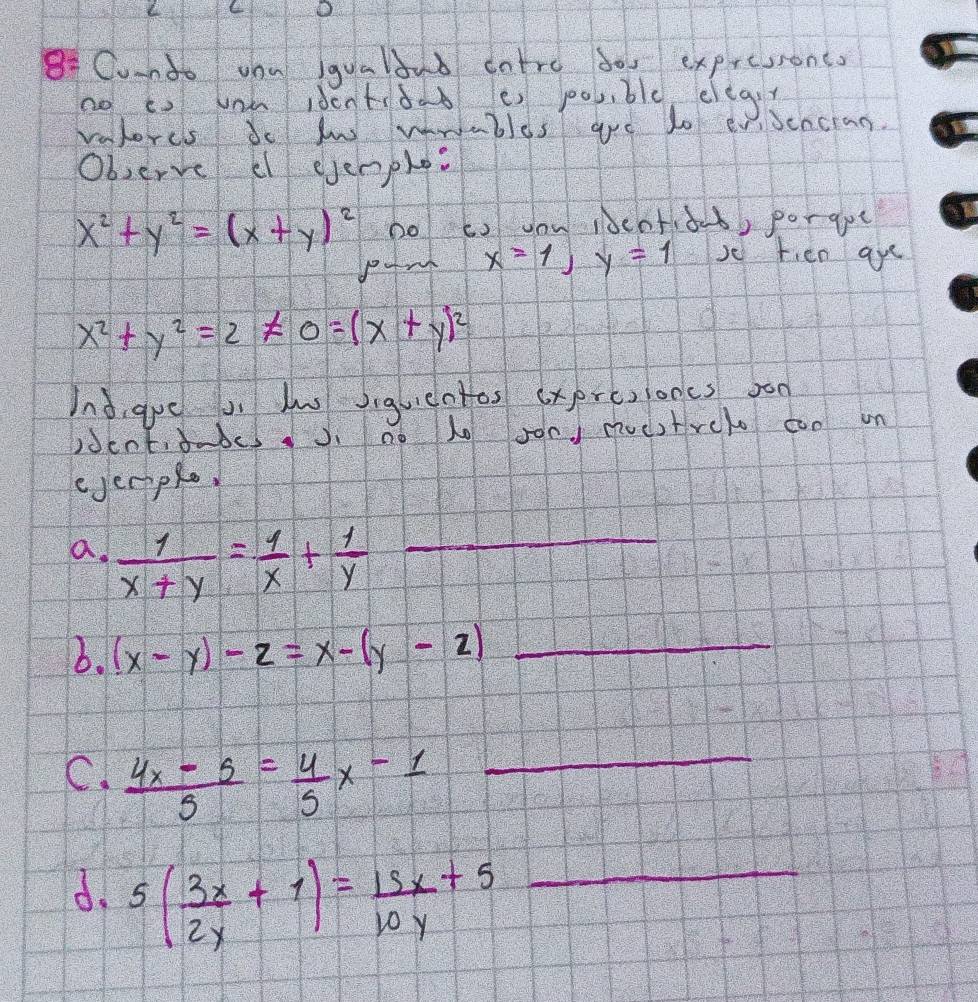 8= Cuando una igualdad entre dos expresiones
no es una identidad es posible elegir
valores de las variables que lo evidencian.
Observe el ejemplo:
x² + y² = (x + y)² no es una identidad, porque
para x = 1, y = 1 se tien que
x² + y² = 2 ≠ 0 = (x + y)²
Indique si las siguientes expresiones son
identidades. si no lo son, muestrelo con un
ejemplo.
a. 1/(x + y) = 1/x + 1/y
b. (x - y) - z = x - (y - z)
c. (4x - 5)/5 = 4/5 x - 1
d. 5 (3x/2y + 1) = 15x/10y + 5